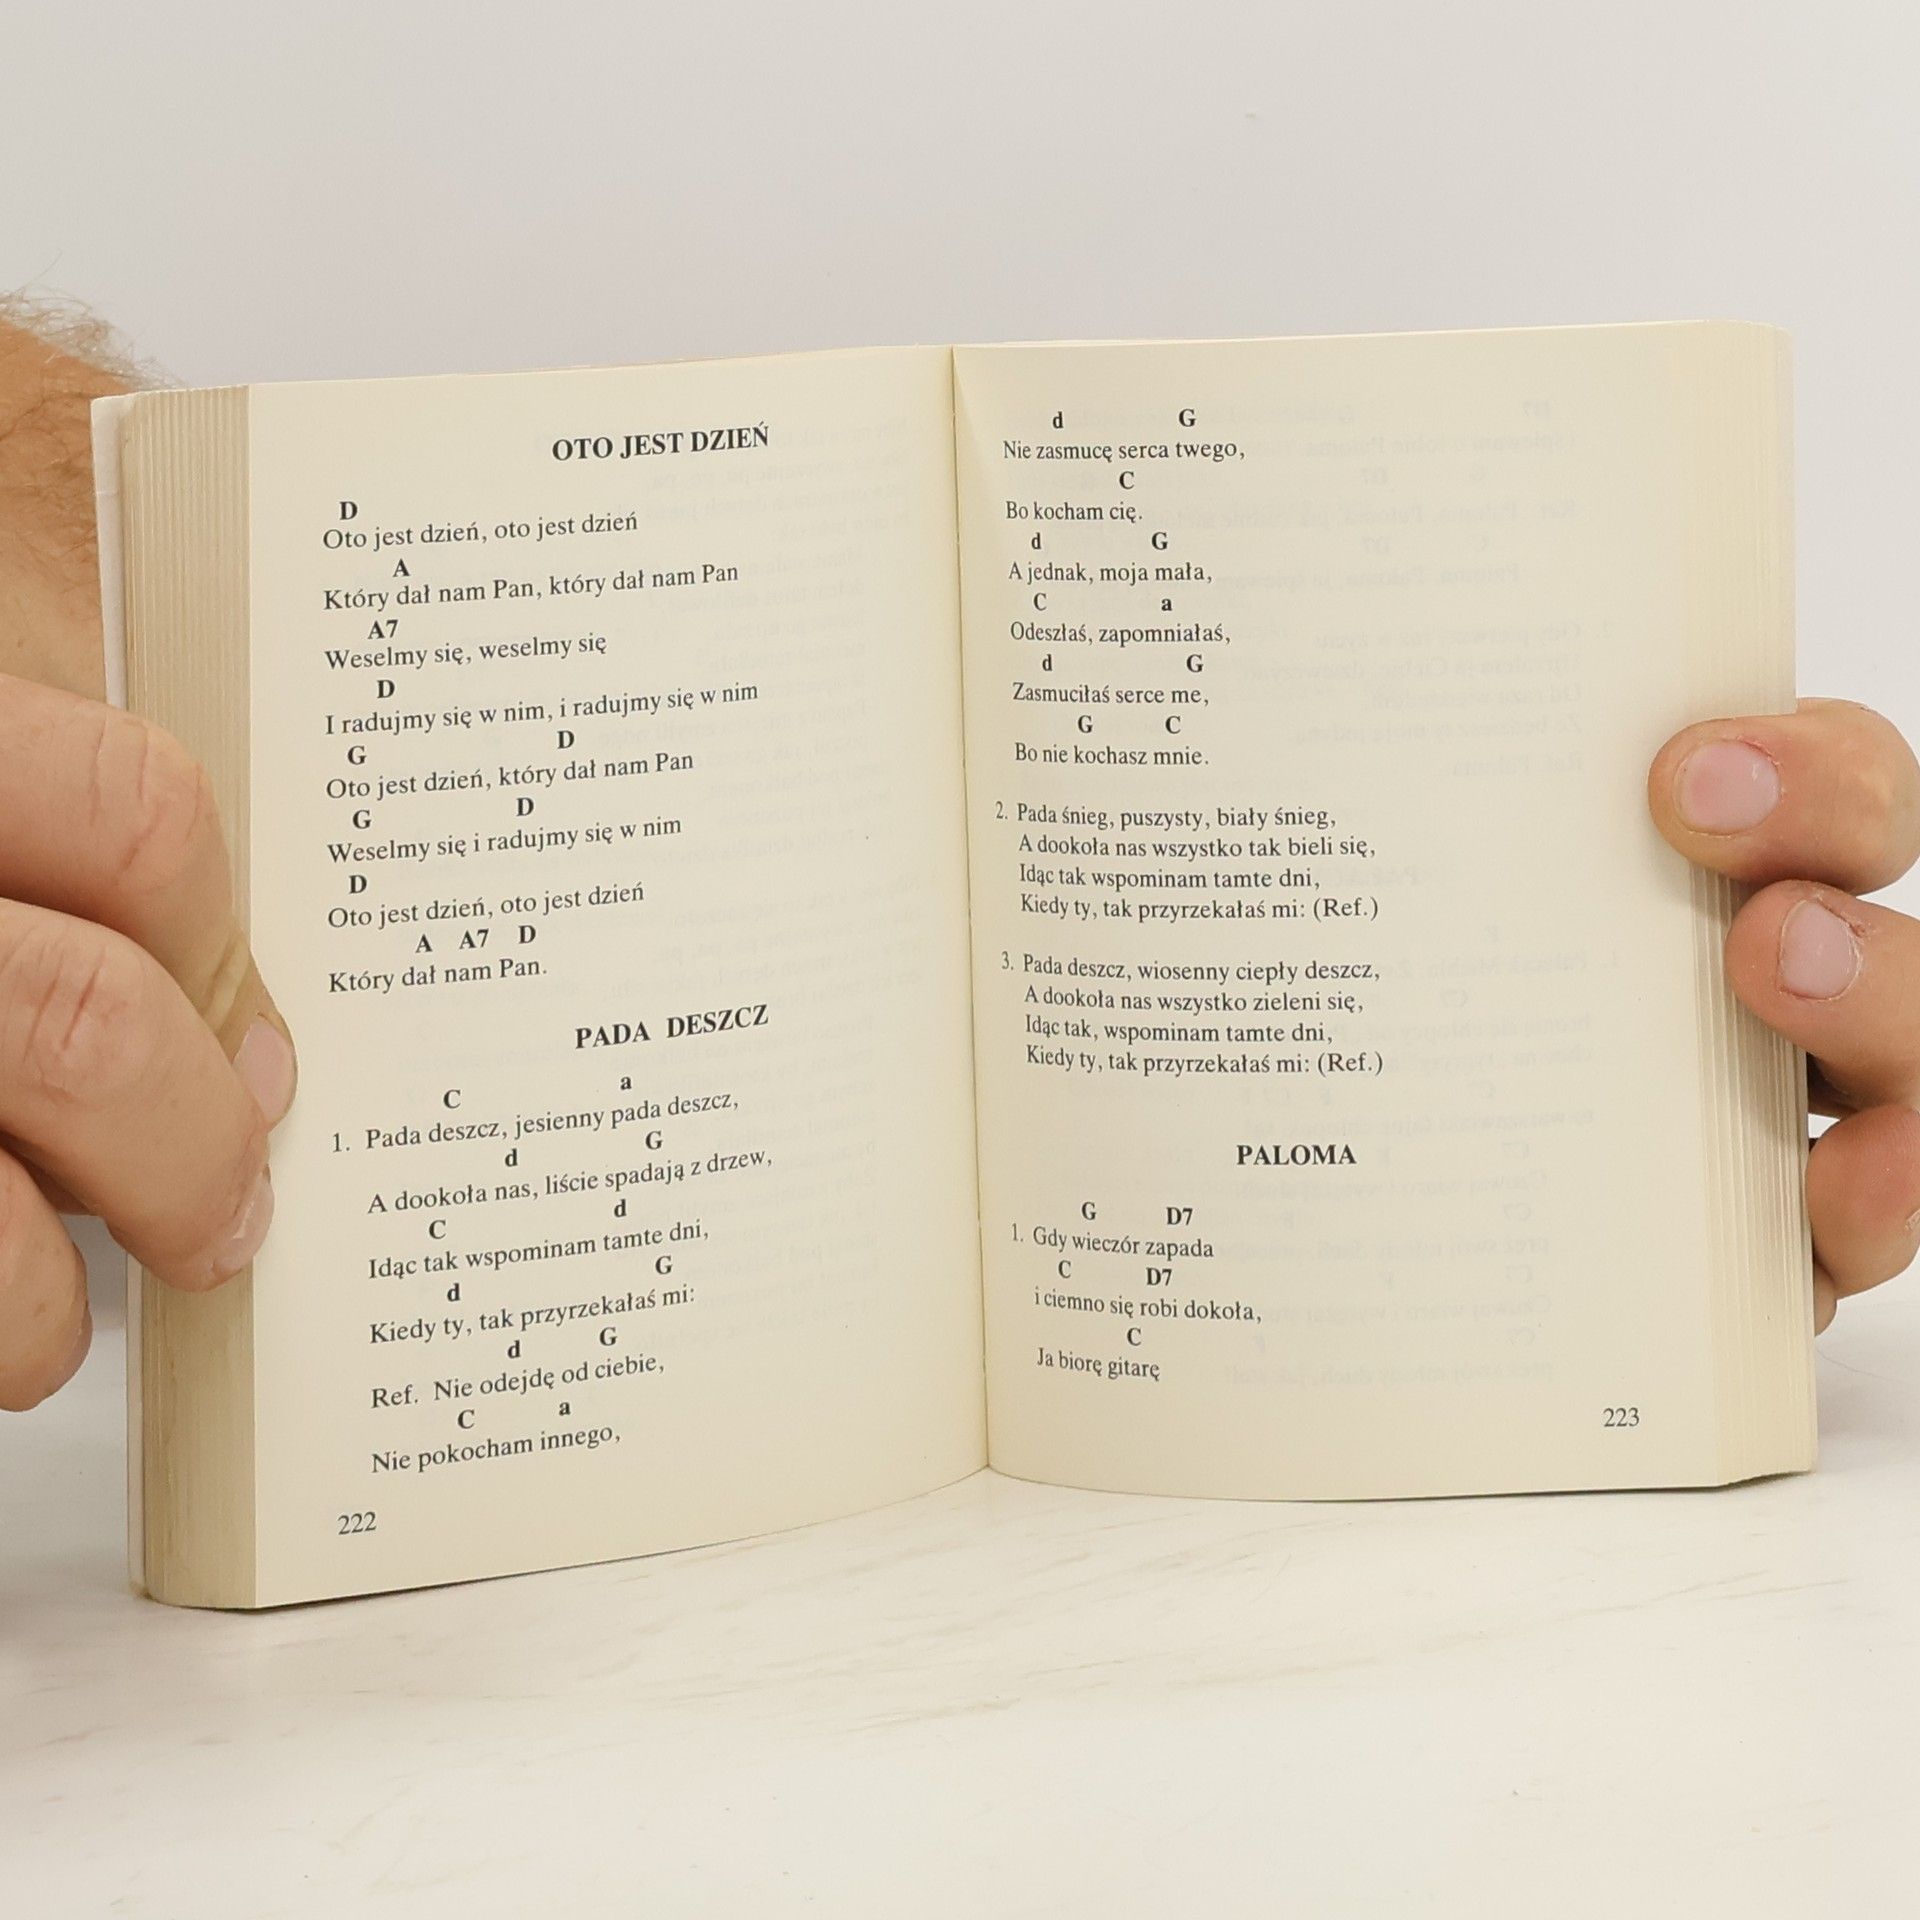 OTO JEST DZIEŃ
D
Oto jest dzień, oto jest dzień
A
Który dał nam Pan, który dał nam Pan
A7
Weselmy się, weselmy się
D
I radujmy się w nim, i radujmy się w nim
G D
Oto jest dzień, który dał nam Pan
G D
Weselmy się i radujmy się w nim
D
Oto jest dzień, oto jest dzień
A A7 D
Który dał nam Pan.
PADA DESZCZ
C a
1. Pada deszcz, jesienny pada deszcz,
d G
A dookoła nas, liście spadają z drzew,
C d
Idąc tak wspominam tamte dni,
d G
Kiedy ty, tak przyrzekałaś mi:
d G
Ref. Nie odejdę od ciebie,
C a
Nie pokocham innego,
222
d G
Nie zasmucę serca twego,
C
Bo kocham cię.
d G
A jednak, moja mała,
C a
Odeszłaś, zapomniałaś,
d G
Zasmuciłaś serce me,
G C
Bo nie kochasz mnie.
2. Pada śnieg, puszysty, biały śnieg,
A dookoła nas wszystko tak bieli się,
Idąc tak wspominam tamte dni,
Kiedy ty, tak przyrzekałaś mi: (Ref.)
3. Pada deszcz, wiosenny ciepły deszcz,
A dookoła nas wszystko zieleni się,
Idąc tak, wspominam tamte dni,
Kiedy ty, tak przyrzekałaś mi: (Ref.)
PALOMA
G D7
1. Gdy wieczór zapada
C D7
i ciemno się robi dokoła,
C
Ja biorę gitarę
223